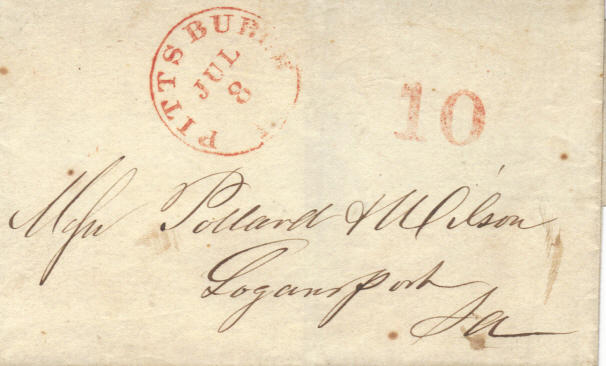 PITTSBURGH
JUL
8
10
Messrs Pollard & Wilson
Logansport
Ia